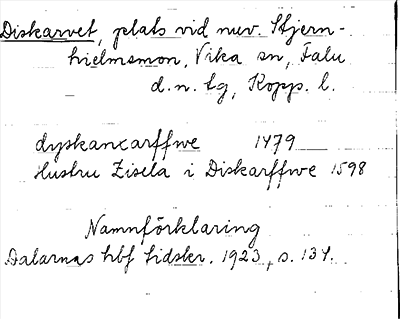 Diskarvet, plats vid nuv. Stjern-
hielmsmon, Vika sn, Falu
d.n. tg, Kopp. l.
dyskancarffwe 1479
Hustru Zisela i Diskarffwe 1598
Namnförklaring
Dalarnas hbf tidskr. 1923, s. 134.